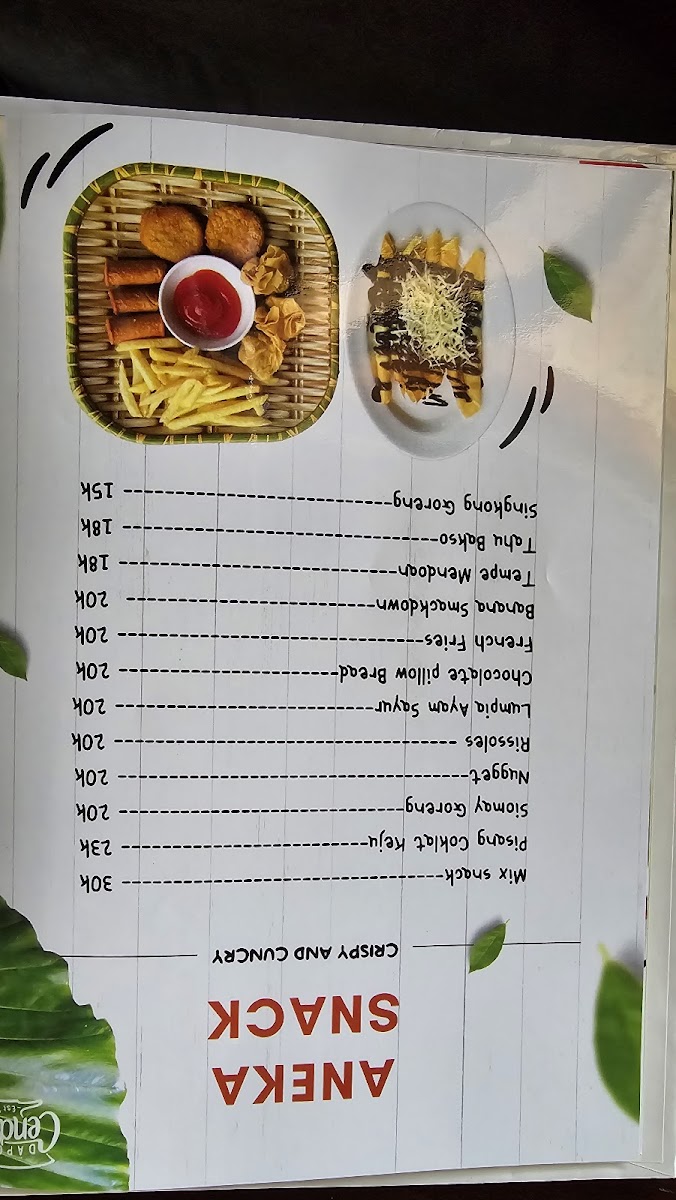 DAPO
Cend
EST
ANEKA
SNACK
CRISPY AND CUNCRY
Mix snack 30k
Pisang Coklat Keju 23k
Siomay Goreng 20k
Nugget 20k
Rissoles 20k
Lumpia Ayam Sayur 20k
Chocolate pillow Bread 20k
French Fries 20k
Banana Smackdown 20k
Tempe Mendoan 18k
Tahu Bakso 18k
Singkong Goreng 15k